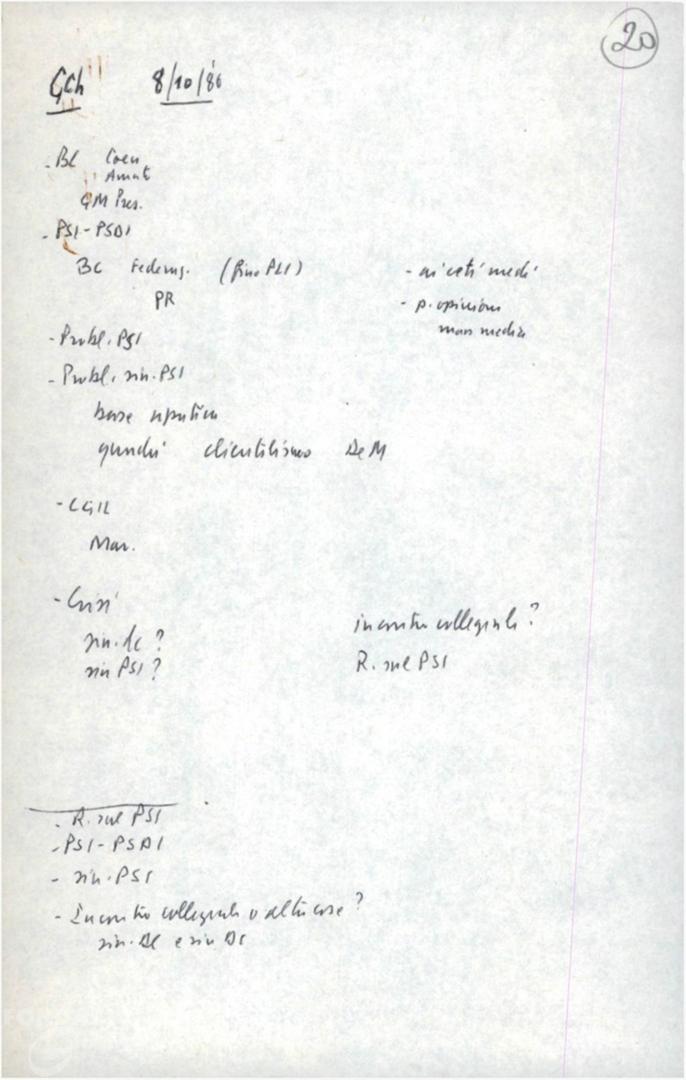 20
GCh 8/10/'80
- BC Coen
Amat
GM Pres.
- PSI-PSDI
BC Federaz. (fino PLI)
- ai ceti medi
PR
- p. opinion
mass media
- Probl. PSI
- Probl. sin. PSI
base
quindi clientelismo De M
- CGIL
Mar.
- Crisi
sin. dc ?
incontro collegiale ?
sin PSI ?
R. sul PSI
- R. sul PSI
- PSI - PSDI
- sin. PSI
- Incontro collegiale o altre cose ?
sin. e sin